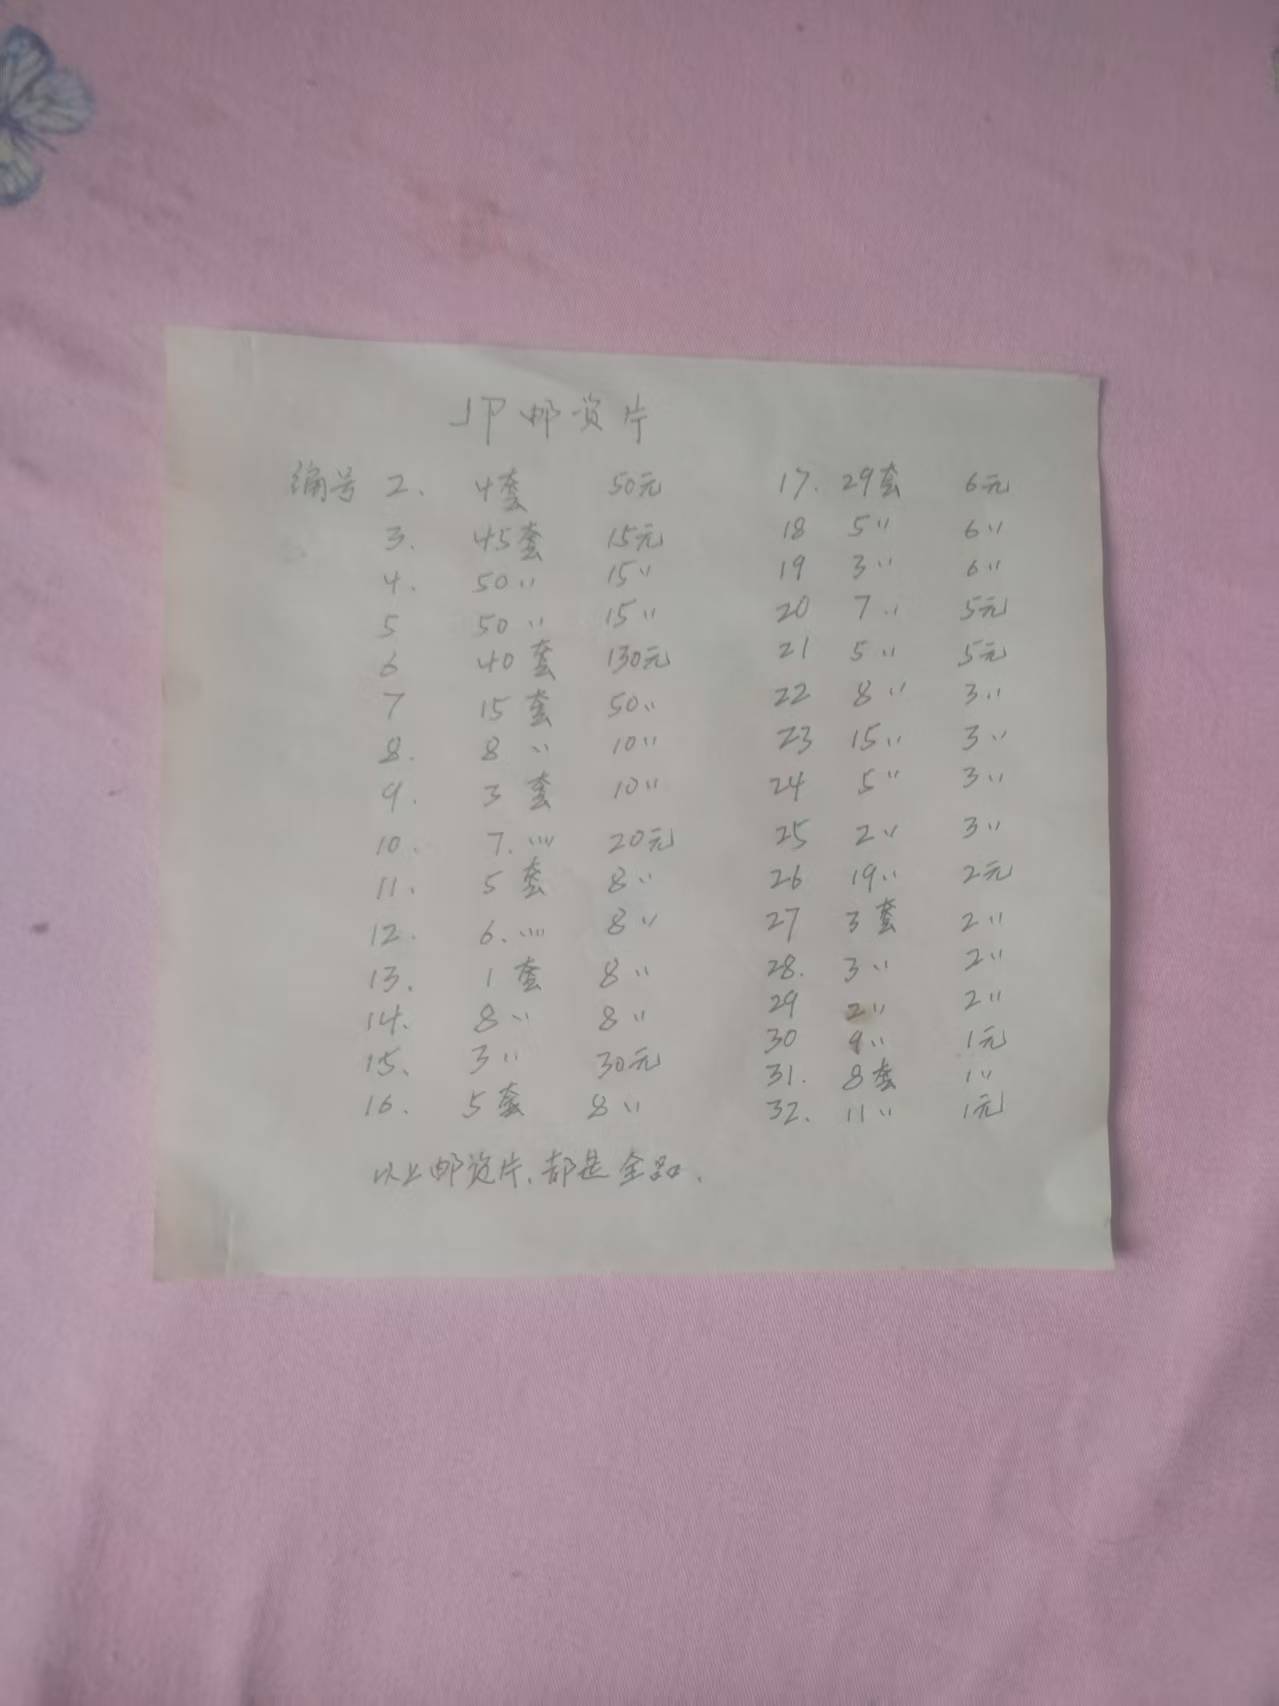 JP邮资片
编号 2. 4套 50元
3. 45套 15元
4. 50〃 15〃
5 50〃 15〃
6 40套 130元
7 15套 50〃
8. 8〃 10〃
9. 3套 10〃
10. 7.〃〃 20元
11. 5套 8〃
12. 6.〃〃 8〃
13. 1套 8〃
14. 8〃 8〃
15. 3〃 30元
16. 5套 8〃
17. 29套 6元
18 5〃 6〃
19 3〃 6〃
20 7〃 5元
21 5〃 5元
22 8〃 3〃
23 15〃 3〃
24 5〃 3〃
25 2〃 3〃
26 19〃 2元
27 3套 2〃
28. 3〃 2〃
29 2〃 2〃
30 9〃 1元
31. 8套 1〃
32. 11〃 1元
以上邮资片.都是全品.